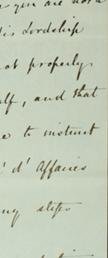 you are now
His Lordship
not properly
elf, and that
e to instruct
d' Affaires
ny steps